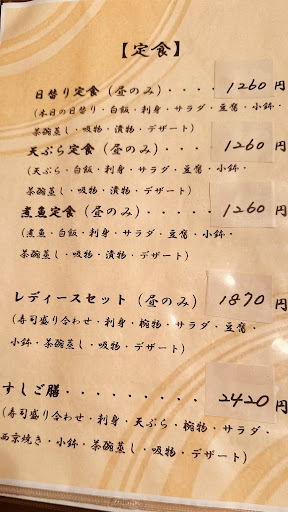 【定食】
日替り定食（昼のみ）・・・・1260円
（本日の日替り・白飯・刺身・サラダ・豆腐・小鉢・
茶碗蒸し・吸物・漬物・デザート）
天ぷら定食（昼のみ）・・・・1260円
（天ぷら・白飯・刺身・サラダ・豆腐・小鉢・
茶碗蒸し・吸物・漬物・デザート）
煮魚定食（昼のみ）・・・・・1260円
（煮魚・白飯・刺身・サラダ・豆腐・小鉢・
茶碗蒸し・吸物・漬物・デザート）
レディースセット（昼のみ）・1870円
（寿司盛り合わせ・刺身・椀物・サラダ・豆腐・
小鉢・茶碗蒸し・吸物・デザート）
すしご膳・・・・・・・・・2420円
（寿司盛り合わせ・刺身・天ぷら・椀物・サラダ・
西京焼き・小鉢・茶碗蒸し・吸物・デザート）